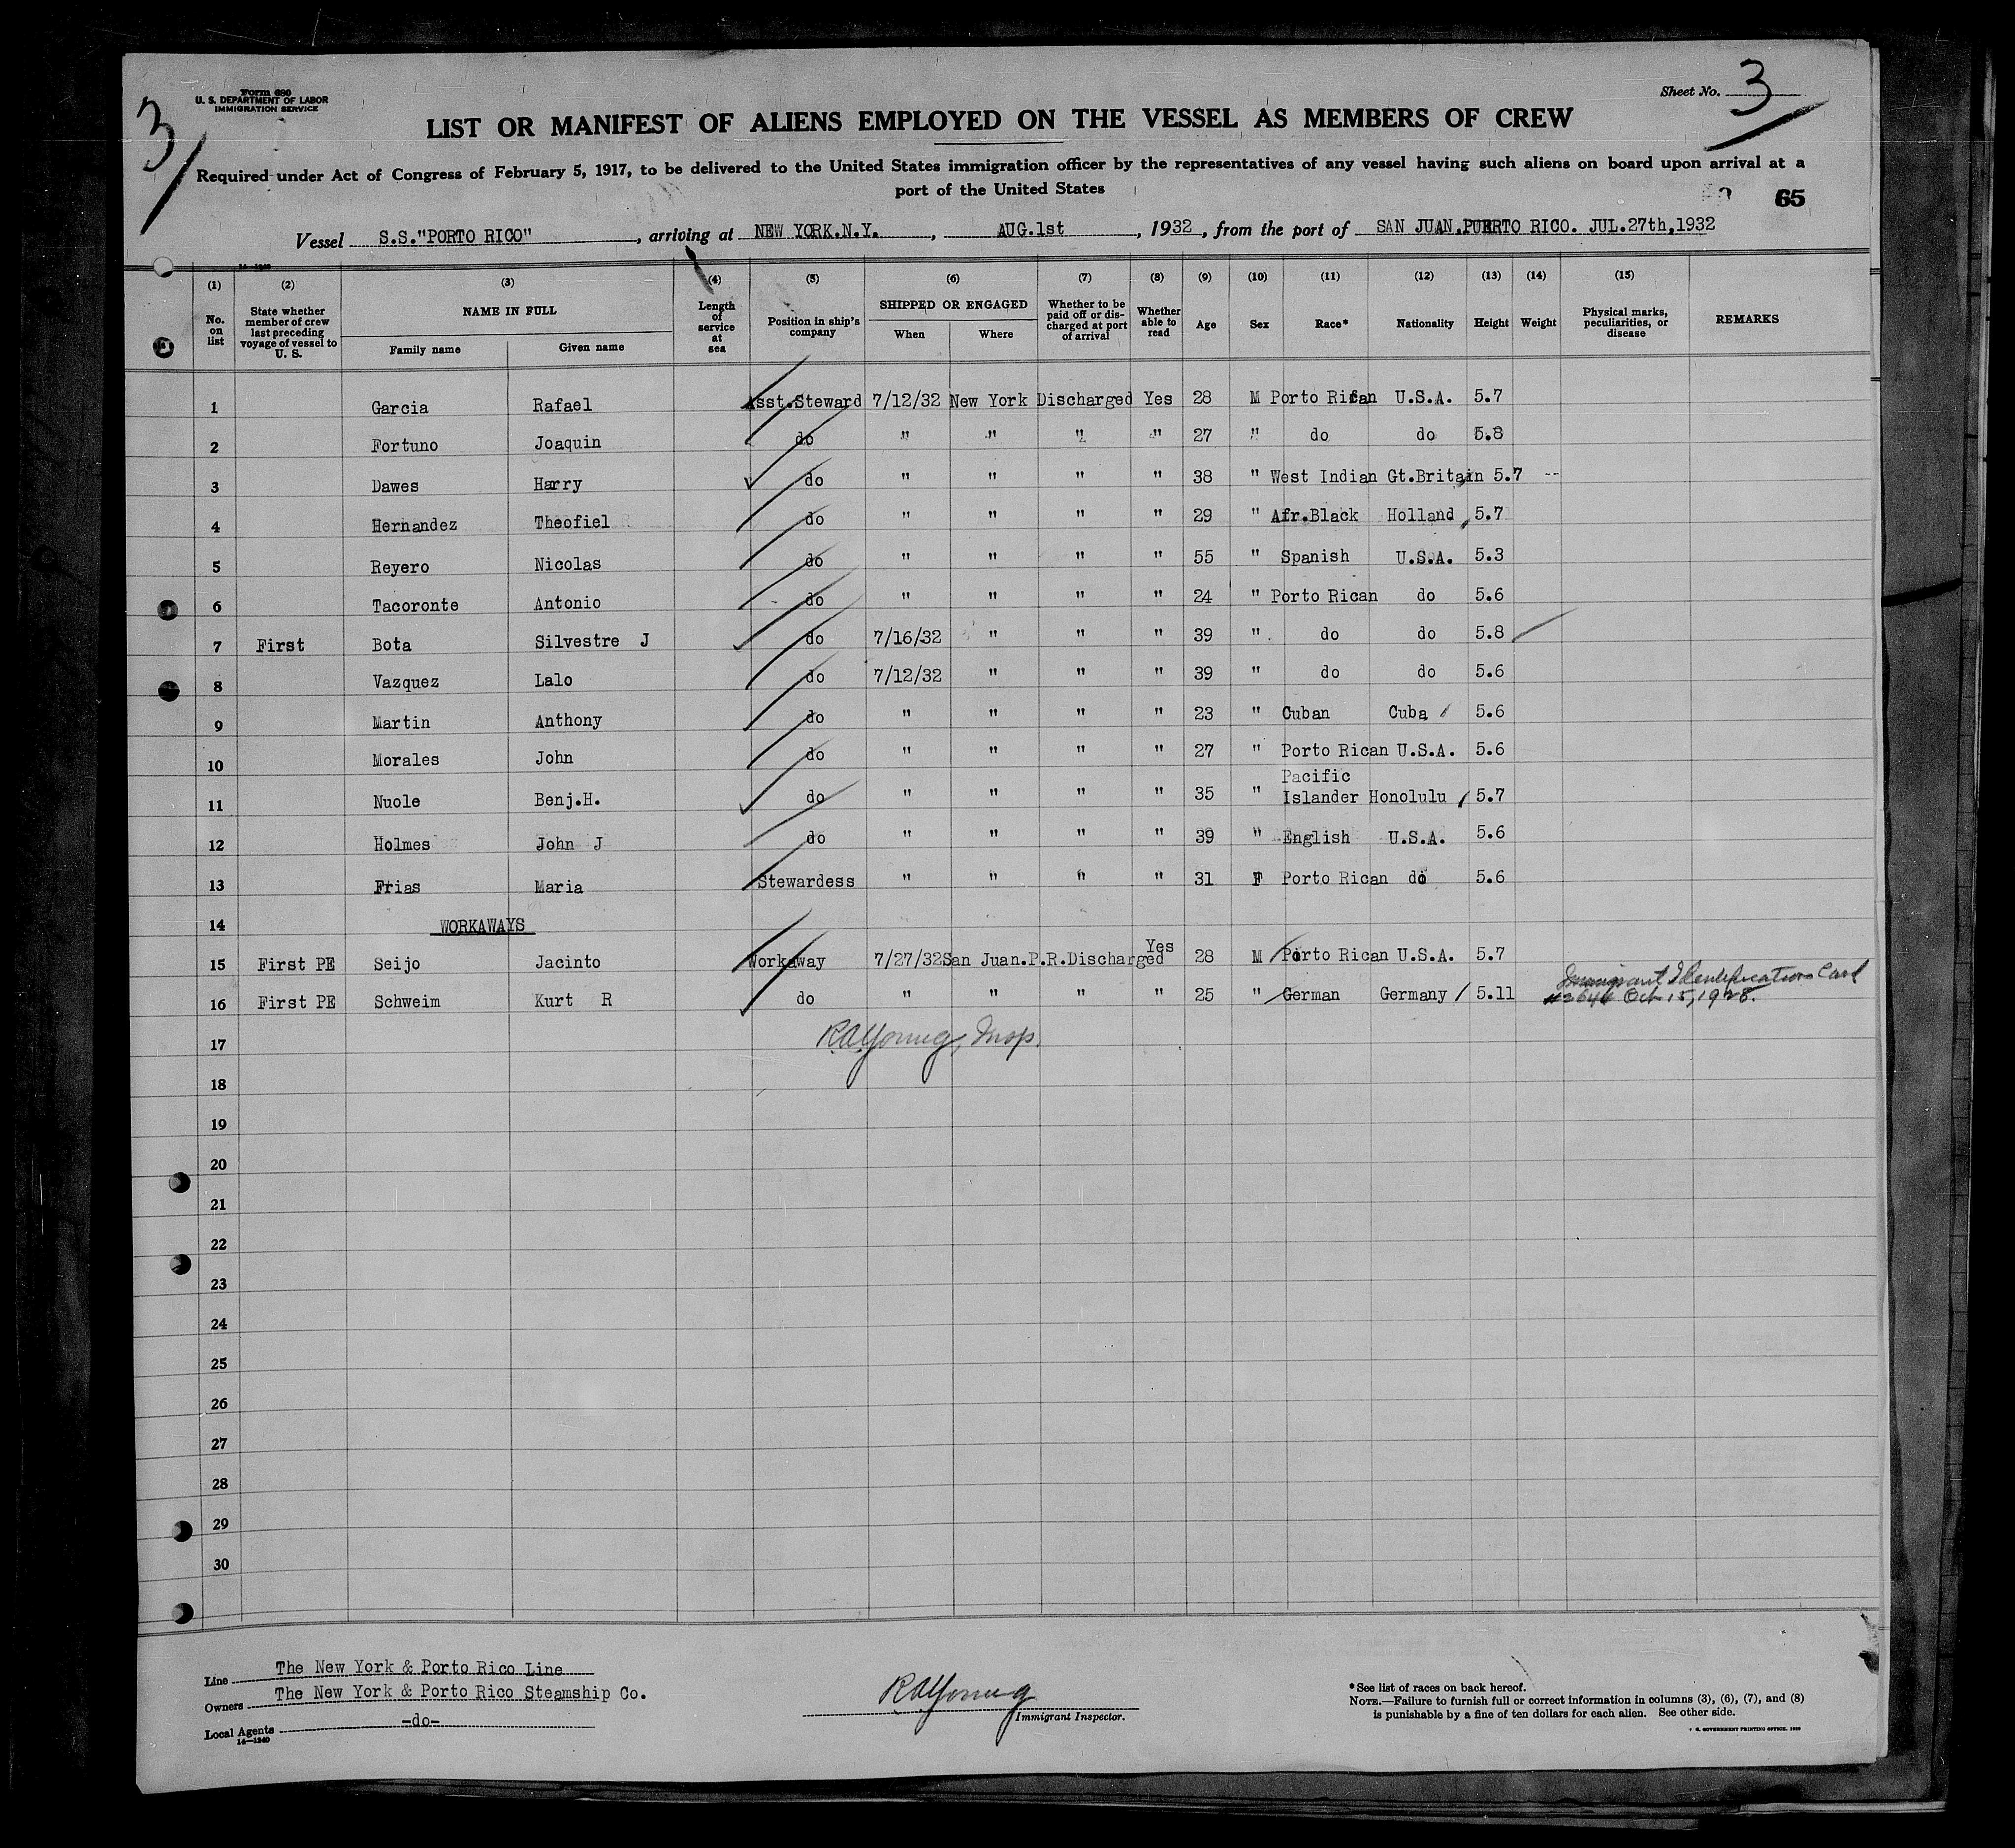 Form 680
U. S. DEPARTMENT OF LABOR
IMMIGRATION SERVICE
3
Sheet No. 3
LIST OR MANIFEST OF ALIENS EMPLOYED ON THE VESSEL AS MEMBERS OF CREW
Required under Act of Congress of February 5, 1917, to be delivered to the United States immigration officer by the representatives of any vessel having such aliens on board upon arrival at a
port of the United States
65
Vessel S.S."PORTO RICO", arriving at NEW YORK.N.Y., AUG.1st, 1932, from the port of SAN JUAN.PUERTO RICO. JUL.27th,1932
14—1240
(1) (2) (3) (4) (5) (6) (7) (8) (9) (10) (11) (12) (13) (14) (15)
No. on list
State whether member of crew last preceding voyage of vessel to U. S.
NAME IN FULL
Family name Given name
Length of service at sea
Position in ship's company
SHIPPED OR ENGAGED
When Where
Whether to be paid off or discharged at port of arrival
Whether able to read
Age Sex Race* Nationality Height Weight
Physical marks, peculiarities, or disease
REMARKS
1 Garcia Rafael Asst.Steward 7/12/32 New York Discharged Yes 28 M Porto Rican U.S.A. 5.7
2 Fortuno Joaquin do " " " " 27 " do do 5.8
3 Dawes Harry do " " " " 38 " West Indian Gt.Britain 5.7 --
4 Hernandez Theofiel do " " " " 29 " Afr.Black Holland 5.7
5 Reyero Nicolas do " " " " 55 " Spanish U.S.A. 5.3
6 Tacoronte Antonio do " " " " 24 " Porto Rican do 5.6
7 First Bota Silvestre J do 7/16/32 " " " 39 " do do 5.8
8 Vazquez Lalo do 7/12/32 " " " 39 " do do 5.6
9 Martin Anthony do " " " " 23 " Cuban Cuba 5.6
10 Morales John do " " " " 27 " Porto Rican U.S.A. 5.6
11 Nuole Benj.H. do " " " " 35 " Pacific Islander Honolulu 5.7
12 Holmes John J do " " " " 39 " English U.S.A. 5.6
13 Frias Maria Stewardess " " " " 31 F Porto Rican do 5.6
14 WORKAWAYS
15 First PE Seijo Jacinto Workaway 7/27/32 San Juan.P.R. Discharged Yes 28 M Porto Rican U.S.A. 5.7
16 First PE Schweim Kurt R do " " " " 25 " German Germany 5.11 Immigrant Identification Card
#2646 Oct 15, 1928.
17 RAYoung, Insp.
18
19
20
21
22
23
24
25
26
27
28
29
30
Line The New York & Porto Rico Line
Owners The New York & Porto Rico Steamship Co.
Local Agents -do-
14—1240
RAYoung
Immigrant Inspector.
* See list of races on back hereof.
NOTE.—Failure to furnish full or correct information in columns (3), (6), (7), and (8)
is punishable by a fine of ten dollars for each alien. See other side.